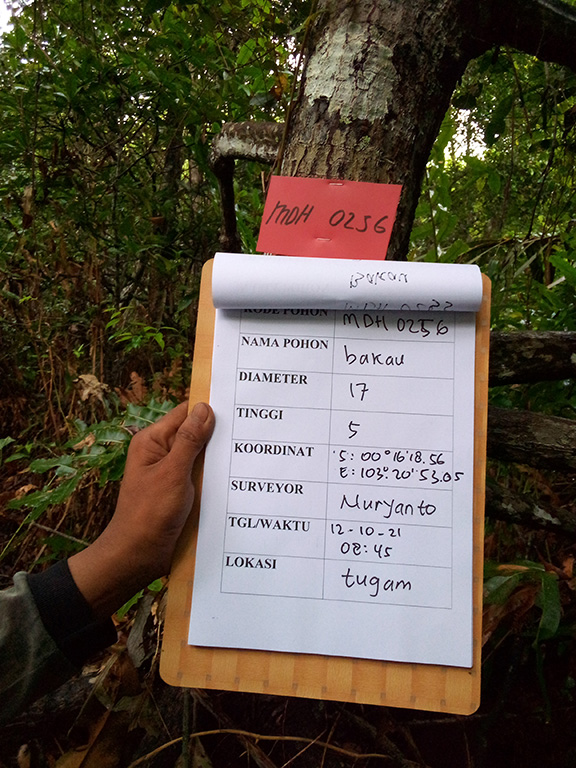 MDH 0256
Bakau
KODE POHON MDH 0256
NAMA POHON bakau
DIAMETER 17
TINGGI 5
KOORDINAT S: 00°16'18.56
E: 103°.20'53.05
SURVEYOR Muryanto
TGL/WAKTU 12-10-21
08:45
LOKASI tugam